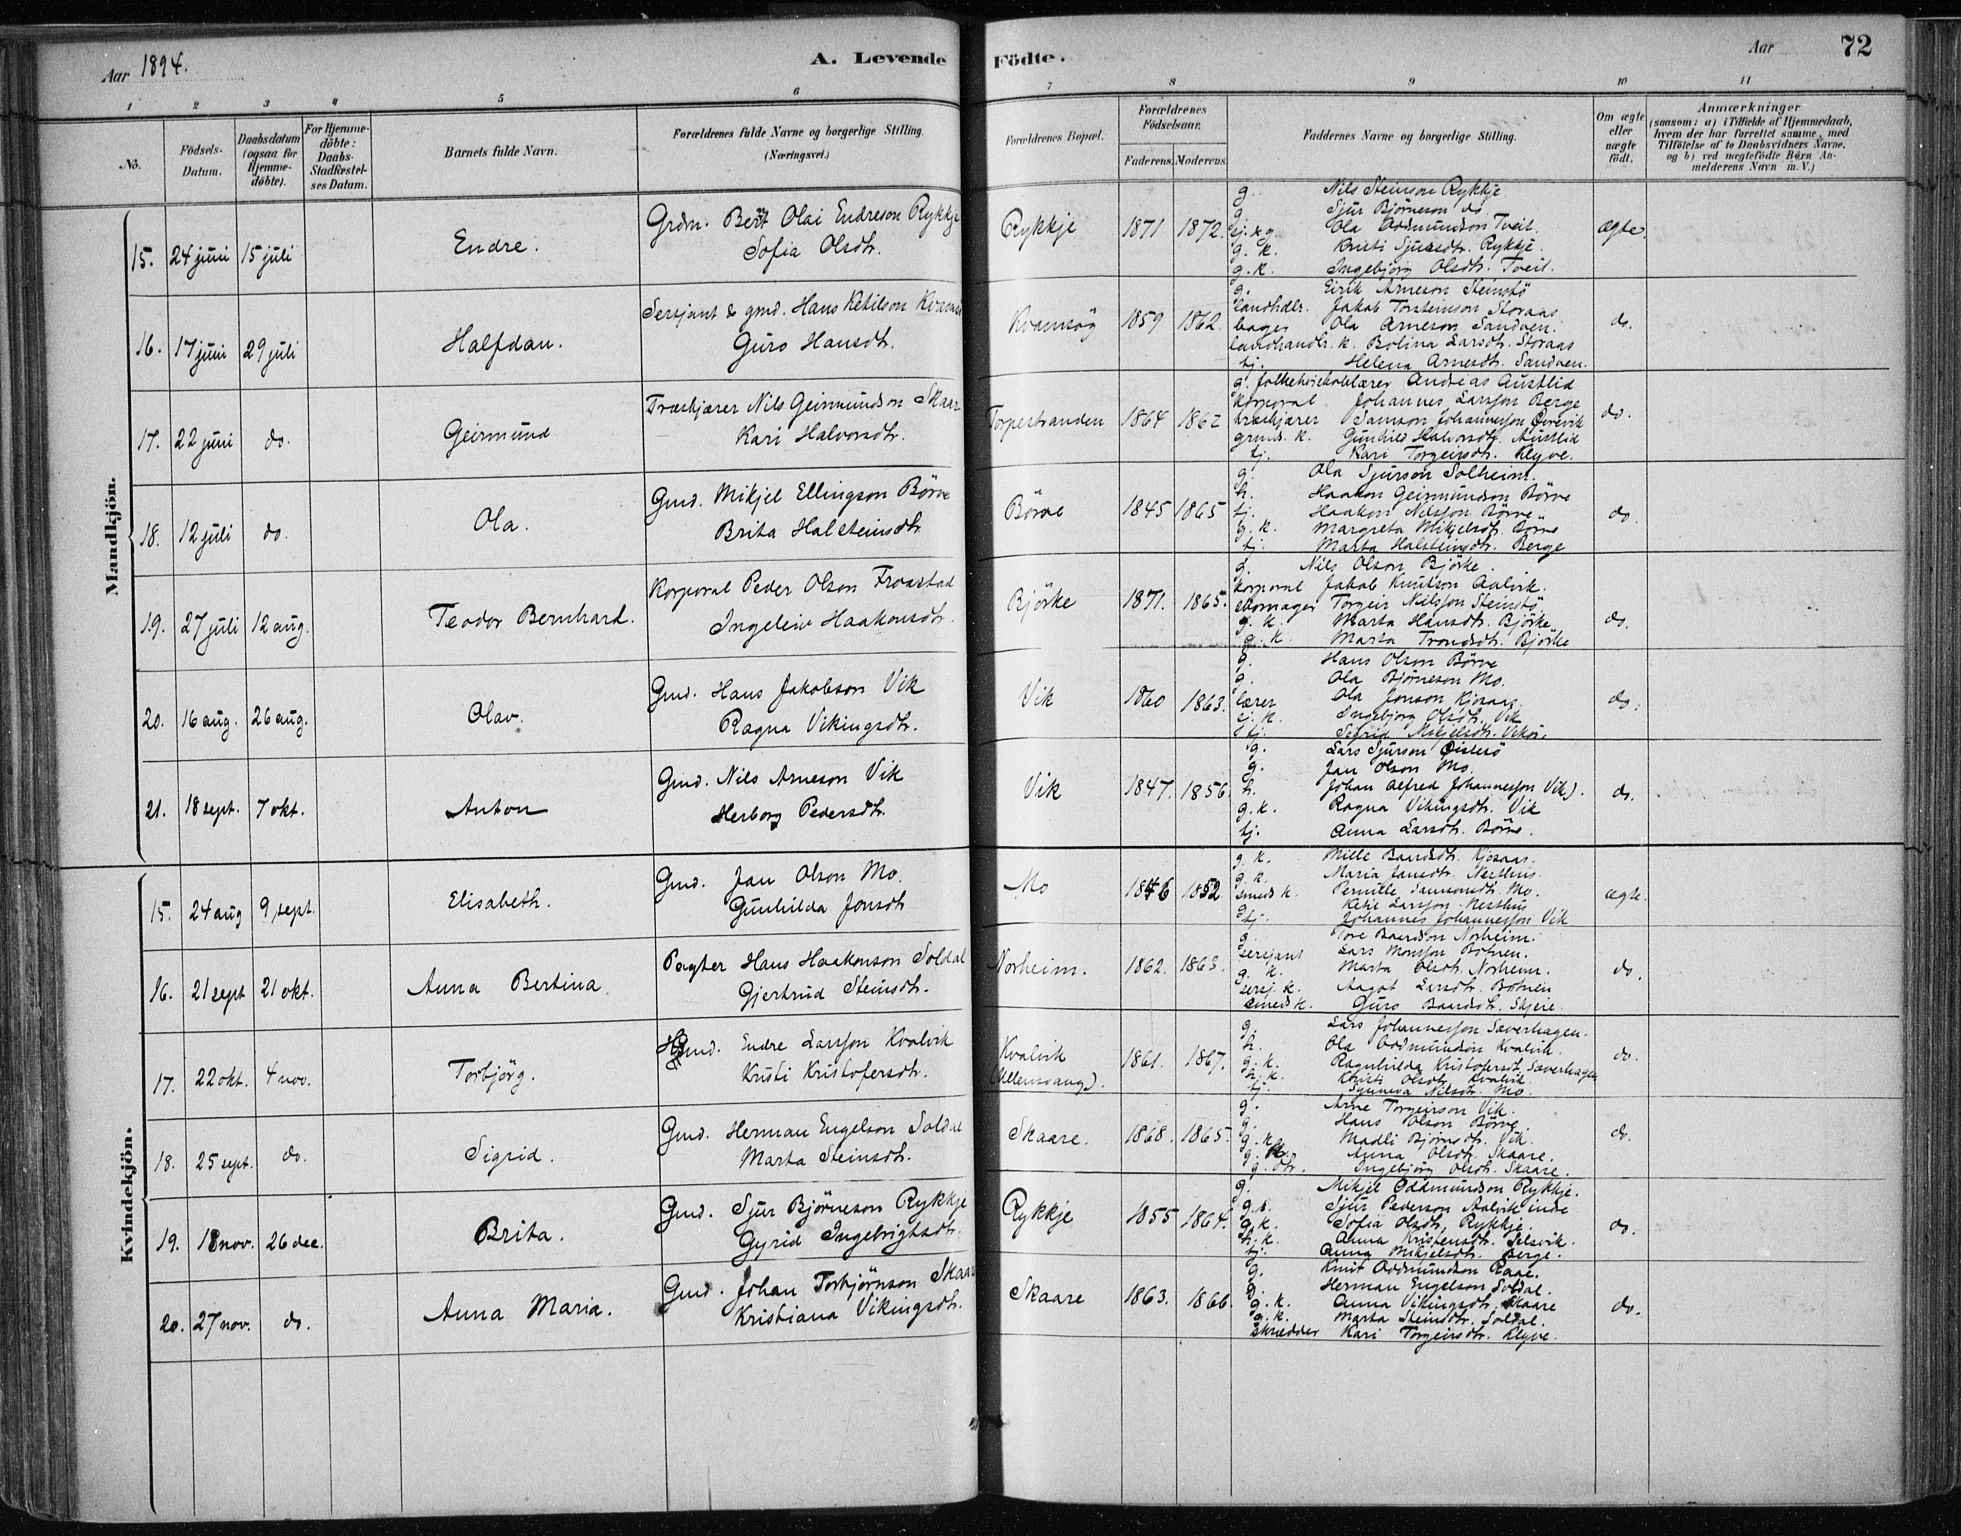 Aar 1894.
A. Levende
Födte.
Aar
72
1
2
3
4
5
6
7
8
9
10
11
No.
Födsels-
Datum.
Daabsdatum
(ogsaa for
Hjemme-
döbte).
For Hjemme-
döbte:
Daabs-
Stadfæstel-
ses Datum.
Barnets fulde Navn.
Forældrenes fulde Navne og borgerlige Stilling.
(Næringsvei.)
Forældrenes Bopæl.
Forældrenes
Födselsaar.
Faderens.
Moderens.
Faddernes Navne og borgerlige Stilling.
Om ægte
eller
uægte
födt.
Anmærkninger
(saasom: a) i Tilfælde af Hjemmedaab,
hvem der har forrettet samme, med
Tilföielse af to Daabsvidners Navne,
og b) ved uægtefödte Börn An-
melderens Navn m. V.)
Mandkjön.
15. 24 juni 15 juli
Endre.
Grdm. Berit Olai Endreson Rykkje
Sofia Olsdtr.
Rykkje
1871 1872.
g. Nils Steinson Rykkje
g. Sjur Björneson do
Ola Oddmundson Tveit.
g. k. Kristi Sjursdtr. Rykkje.
g. k. Ingebjörg Olsdtr. Tveit.
ægte.
16. 17 juni 29 juli
Halfdan.
Sersjant & gmd. Hans Ketilson
Guro Hansdtr.
Kvamsög
1859 1862.
g. Eirik Arneson Steinstö
landhdlr. Jakob Torsteinson Storaas
bager Ola Arneson Sandven.
landhandlr. k. Bolina Larsdtr. Storaas
tj. Helena Arnesdtr. Sandven.
do.
17. 22 juni do.
Geirmund
Træskjærer Nils Geirmundson Skaar
Kari Halvorsdtr.
Torpestranden
1864 1862
g. folkehöiskolelærer Andreas Austlid
korporal Johannes Larsson Berge
træskjærer Samson Johannesson Övrevik
grmd. k. Gunhild Halvorsdtr. Austlid
tj. Kari Torgeirsdtr. Klyve.
do.
18. 12 juli do.
Ola.
Gmd. Mikjel Ellingson Börve
Brita Halsteinsdtr.
Börve
1845 1865
g. Ola Sjurson Solheim.
h. Haakon Geirmundson Börve
tj. Haakon Nilsson Börve
g. k. Margreta Mikjelsdtr. Börve
tj. Marta Halsteinsdtr. Berge
do.
19. 27 juli 12 aug.
Teodor Bernhard.
Korporal Peder Olson Froastad
Ingeleiv Haakonsdtr.
Bjórke
1871. 1865.
g. Nils Olson Bjórke.
korporal Jakob Knutson Aalvik.
skomager Torgeir Nilsson Steinstö
g. k. Marta Hansdtr. Bjórke
g. k. Marta Trondsdtr. Bjórke
do.
20. 16 aug. 26 aug.
Olav.
Gmd. Hans Jakobson Vik
Ragna Vikingsdtr.
Vik
1860 1863.
g. Hans Olson Börve
g. Ola Björneson Mo.
lærer Ola Jonson Kjosaas
g. k. Ingebjorg Olsdtr. Vik
tj. Sigrid Mikjelsdtr. Vikör.
do.
21. 18 sept. 7 okt.
Anton
Gmd. Nils Arneson Vik
Herborg Pedersdtr.
Vik
1847. 1856.
g. Lars Sjurson Öistesö
g. Jan Olson Mo.
h. Johan Alfred Johannesson Vik).
g. k. Ragna Vikingsdtr. Vik
tj. Anna Larsdtr. Börve.
do.
Kvindekjön.
15. 24 aug 9 sept.
Elisabeth.
Gmd. Jan Olson Mo.
Gunhilda Jonsdtr
Mo
1846 1852
g. k. Mille Baardsdtr. Kjosaas.
g. k. Maria Jansdtr. Nesthus.
smed k. Pernille Samsonsdtr. Mo.
g. Ketil Larsson Nesthus
tj. Johannes Johannesson Vik
ægte.
16. 21 sept 21 okt.
Anna Bertina
Pagter Hans Haakonson Soldal
Gjertrud Steinsdtr.
Norheim.
1862. 1863.
g. Tore Baardson Norheim.
sersjant Lars Monsson Botnen.
g. k. Marta Olsdtr. Norheim.
sersj. k. Aagot Larsdtr. Botnen
smed k. Guro Baardsdtr. Skjeie.
do.
17. 22 okt. 4 nov.
Torbjörg.
Gmd. Endre Larsson Kvalvik
Kristi Kristofersdtr.
Kvalvik
(Ullensvang).
1861. 1867.
g. Lars Johannesson Sæverhagen.
h. Ola Oddmundson Kvalvik.
g. k. Ragnhilda Kristofersdt. Sæverhagen
h. k. Kristi Olsdtr. Kvalvik.
tj. Synneva Nilsdtr. Mo.
do.
18. 25 sept. do.
Sigrid.
Gmd. Herman Engelson Soldal
Marta Steinsdtr.
Skaare.
1868. 1865.
g. Arne Torgeirson Vik.
g. Hans Olson Börve.
g. k. Madli Björnsdtr. Vik.
g. k. Anna Olsdtr. Skaare.
g. dtr. Ingebjörg Olsdtr. Skaare.
do.
19. 18 nov. 26 dec.
Brita.
Gmd. Sjur Björneson Rykkje
Gyrid Ingebrigtsdtr.
Rykkje
1855 1864.
g. Mikjel Oddmundson Rykkje.
g. s. Sjur Pederson Aalvik indre
g. k. Sofia Olsdtr. Rykkje.
h. k. Anna Kristensdtr. Selsvik.
tj. Anna Mikjelsdtr. Berge.
do.
20. 27 nov. do.
Anna Maria.
Gmd. Johan Torbjörnson Skaar
Kristiana Vikingsdtr.
Skaare
1863. 1866.
g. Knut Oddmundson Raae.
g. Herman Engelson Soldal.
g. k. Anna Vikingsdtr. Skaare
g. k. Marta Steinsdtr. Soldal.
skrædder Kari Torgeirsdtr. Klyve.
do.